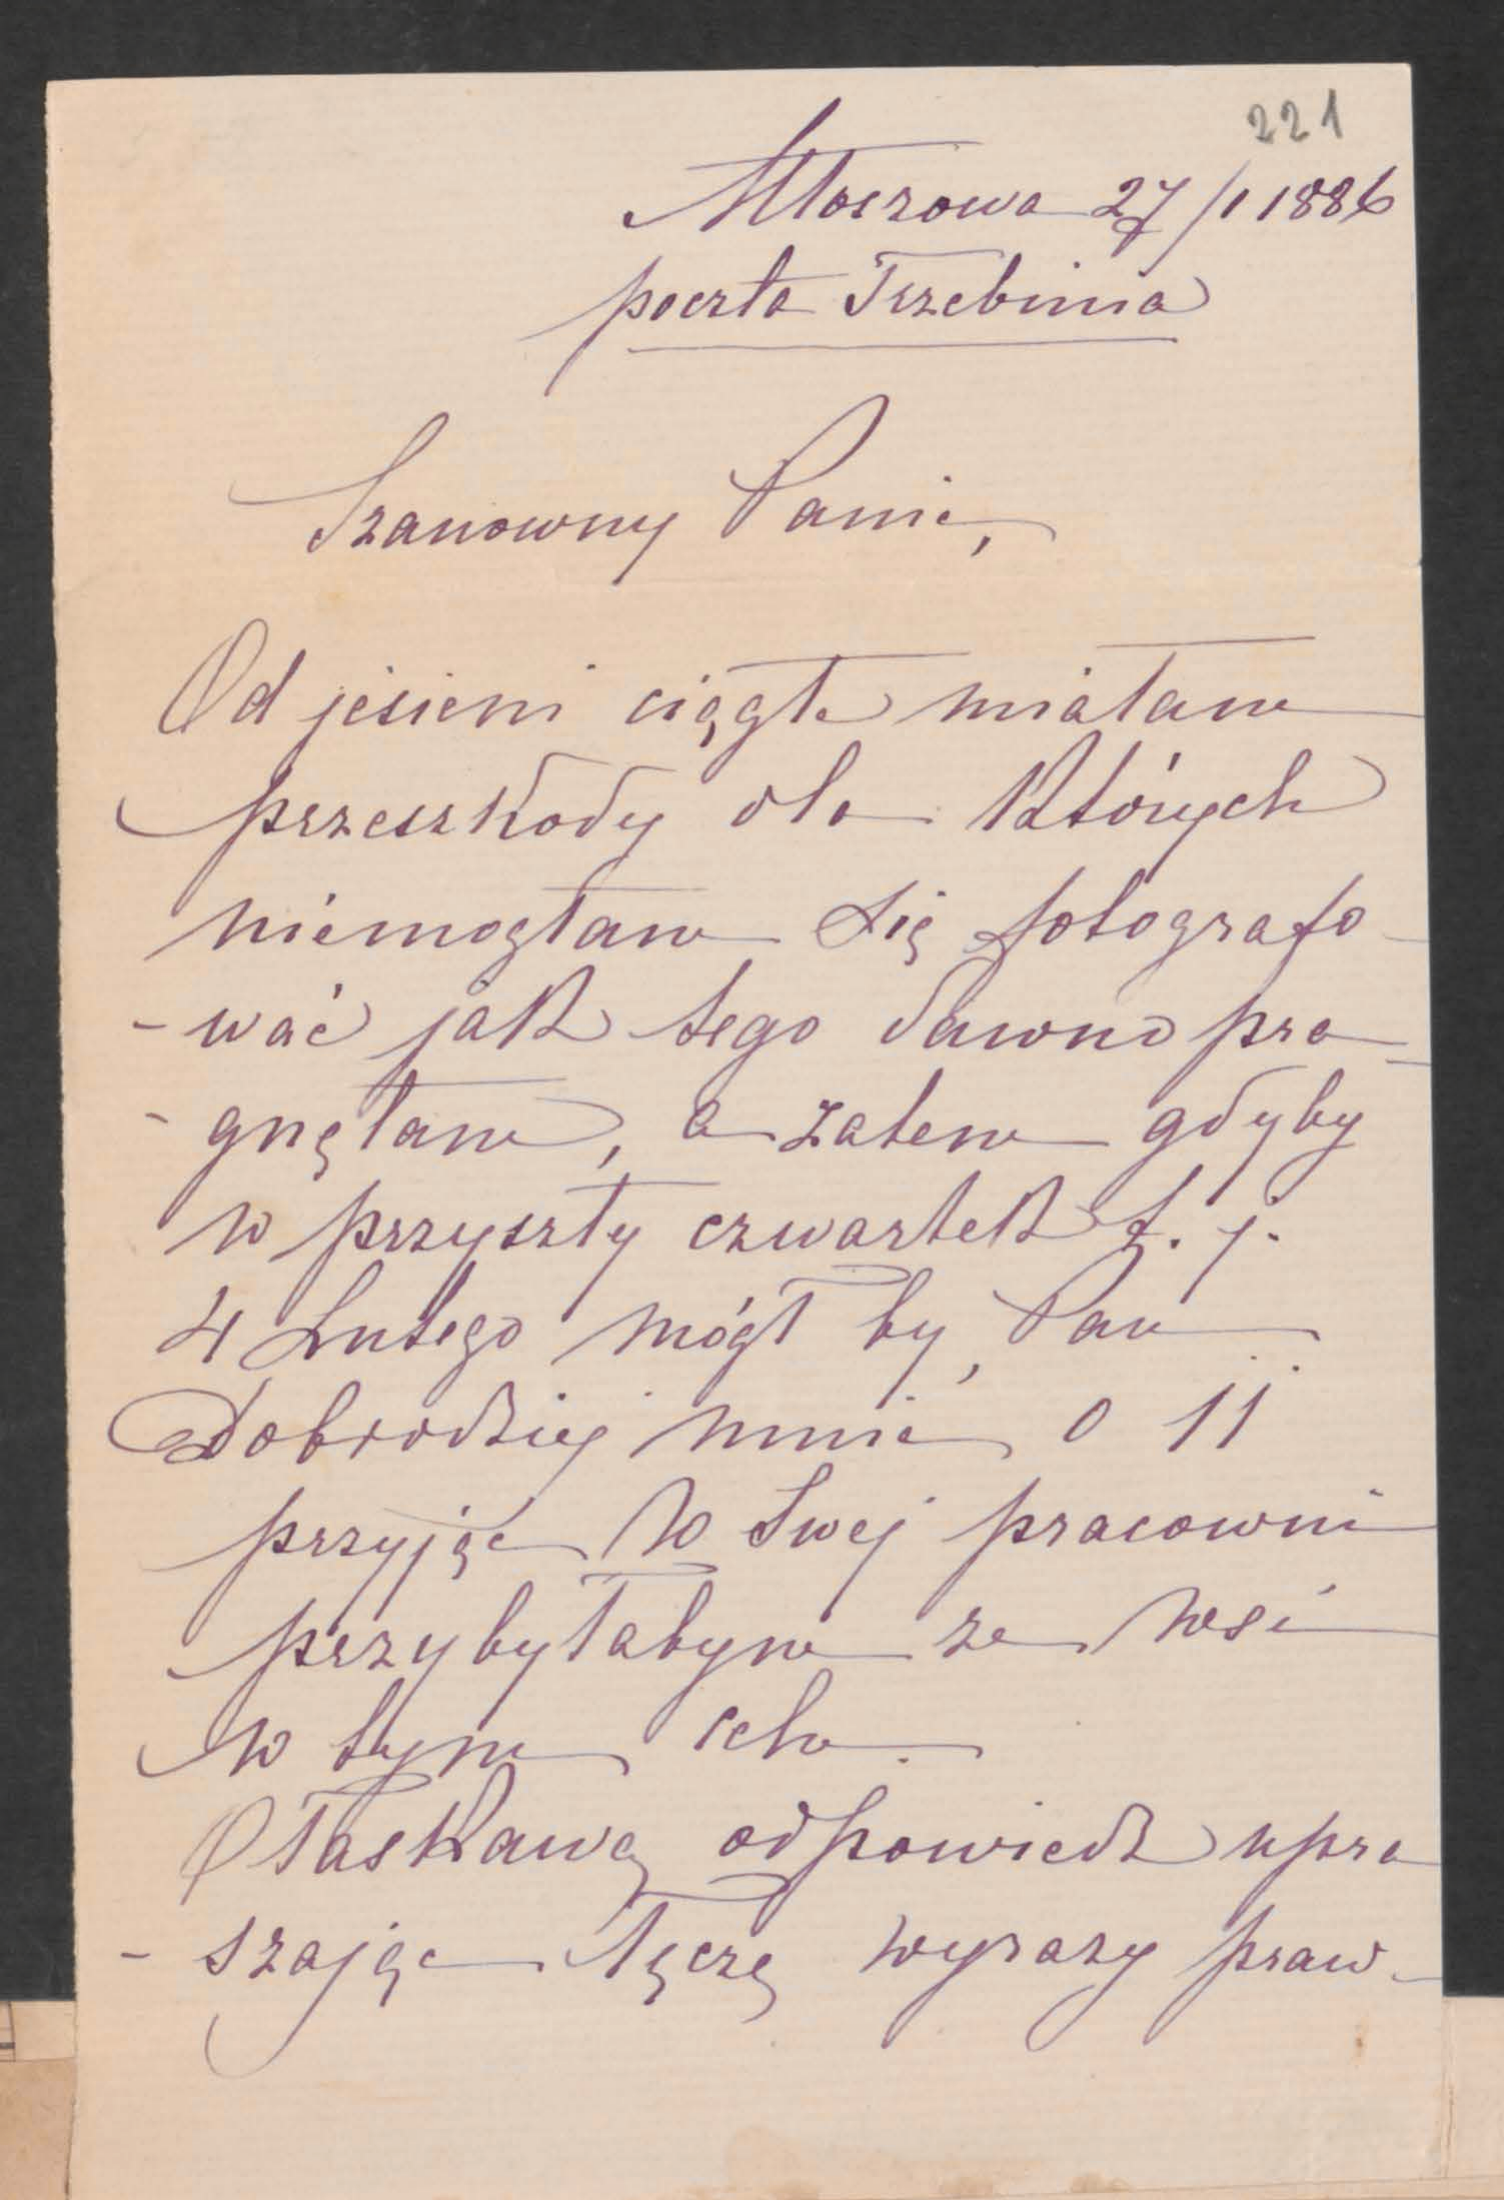 221
Młoszowa 27/1 1886
poczta Trzebinia
Szanowny Panie,
Od jesieni ciągle miałam
przeszkody dla których
niemogłam się fotografo-
-wać jak tego dawno pra-
-gnęłam, a zatem gdyby
w przyszły czwartek t. j.
4 Lutego mógł by, Pan
Dobrodziej mnie o 11
przyjąć w swej pracowni
przybyłabym ze wsi
w tym celu.
O łaskawą odpowiedź upra
-szając łączę wyrazy praw-